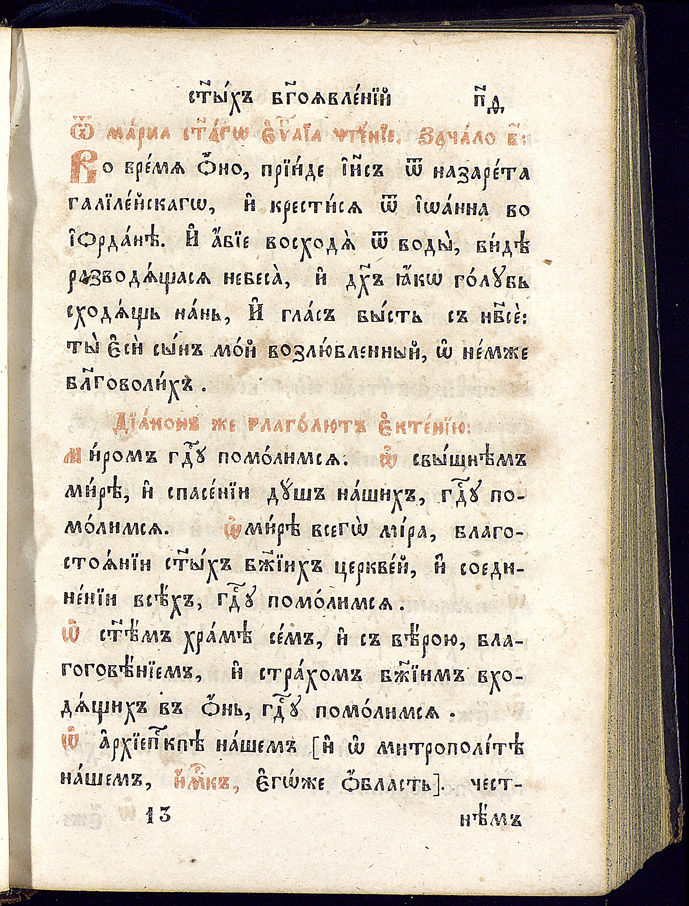 ст҃ы́хъ бг҃оявле́нїй п҃д,
Ѿ ма́рка ст҃а́гѡ є҆ѵ҃а́лїа чте́нїе. Зача́ло в҃:
Во вре́мя ѻ҆́но, прїи́де і҆и҃съ ѿ назаре́та
галїле́йскагѡ, и҆ крести́ся ѿ і҆ѡа́нна во
і҆ѻрда́нѣ. И҆ а҆́бїе восходѧ̀ ѿ воды̀, ви́дѣ
разводѧ́щася небеса̀, и҆ дх҃ъ ꙗ҆́кѡ го́лубь
сходѧ́щь на́нь, И҆ гла́съ бы́сть съ нб҃сѐ:
ты̀ є҆сѝ сы́нъ мо́й возлю́бленный, ѡ҆ не́мже
бл҃говоли́хъ.
Дїа́конъ же глаго́лютъ є҆ктенїю:
ми́ромъ гд҃у помо́лимся. ѡ҆ свы́щнѣмъ
ми́рѣ, и҆ спасе́нїи ду́шъ на́шихъ, гд҃у по-
мо́лимся. ѡ҆ми́рѣ всегѡ̀ мі́ра, благо-
стоя́нїи ст҃ы́хъ бж҃їихъ церкве́й, и҆ соеди-
не́нїи всѣ́хъ, гд҃у помо́лимся.
ѡ҆ ст҃ѣ́мъ хра́мѣ се́мъ, и҆ съ вѣ́рою, бла-
гоговѣ́нїемъ, и҆ стра́хомъ бж҃їимъ вхо-
дѧ́щихъ въ ѻ҆́нь, гд҃у помо́лимся.
ѡ҆ а҆рхїеп҃кпѣ на́шемъ [и҆ ѡ҆ митрополі́тѣ
на́шемъ, и҆м҃к, є҆гѡ́же ѻ҆́бласть]. чест-
13 нѣ́мъ